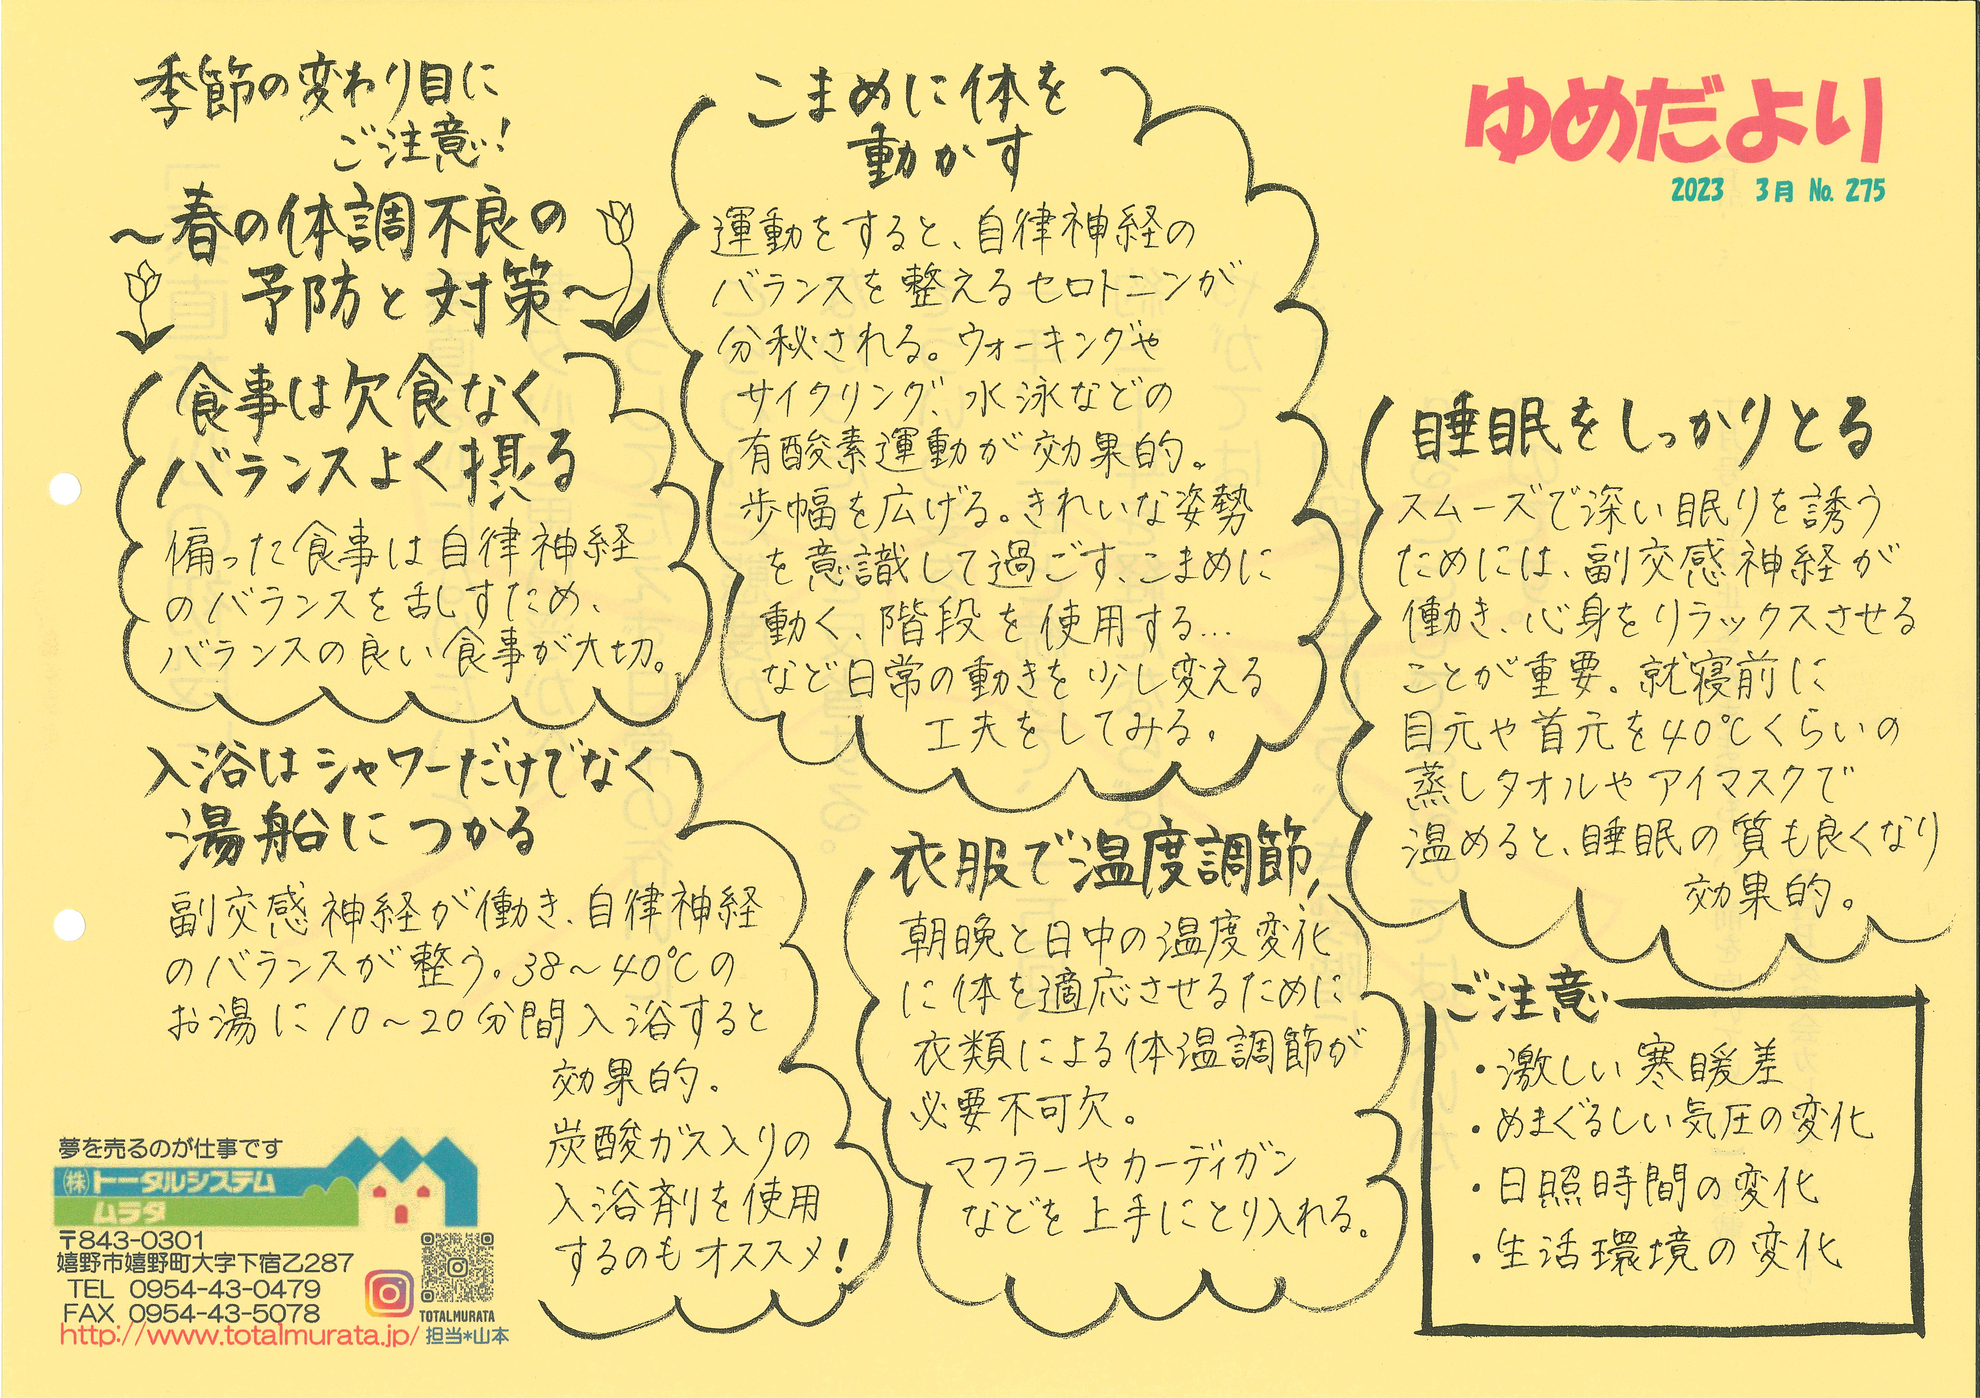 ゆめだより
2023 3月 No. 275
季節の変わり目に
ご注意!
〜春の体調不良の
予防と対策〜
食事は欠食なく
バランスよく摂る
偏った食事は自律神経
のバランスを乱すため、
バランスの良い食事が大切。
入浴はシャワーだけでなく
湯船につかる
副交感神経が働き、自律神経
のバランスが整う。38〜40℃の
お湯に10〜20分間入浴すると
効果的。
炭酸ガス入りの
入浴剤を使用
するのもオススメ!
こまめに体を
動かす
運動をすると、自律神経の
バランスを整えるセロトニンが
分秘される。ウォーキングや
サイクリング、水泳などの
有酸素運動が効果的。
歩幅を広げる。きれいな姿勢
を意識して過ごす、こまめに
動く、階段を使用する…
など日常の動きを少し変える
工夫をしてみる。
衣服で温度調節
朝晩と日中の温度変化
に体を適応させるために
衣類による体温調節が
必要不可欠。
マフラーやカーディガン
などを上手にとり入れる。
睡眠をしっかりとる
スムーズで深い眠りを誘う
ためには、副交感神経が
働き、心身をリラックスさせる
ことが重要。就寝前に
目元や首元を40℃くらいの
蒸しタオルやアイマスクで
温めると、睡眠の質も良くなり
効果的。
ご注意
・激しい寒暖差
・めまぐるしい気圧の変化
・日照時間の変化
・生活環境の変化
夢を売るのが仕事です
㈱トータルシステム
ムラタ
〒843-0301
嬉野市嬉野町大字下宿乙287
TEL 0954-43-0479
FAX 0954-43-5078
http://www.totalmurata.jp/
TOTALMURATA
担当*山本